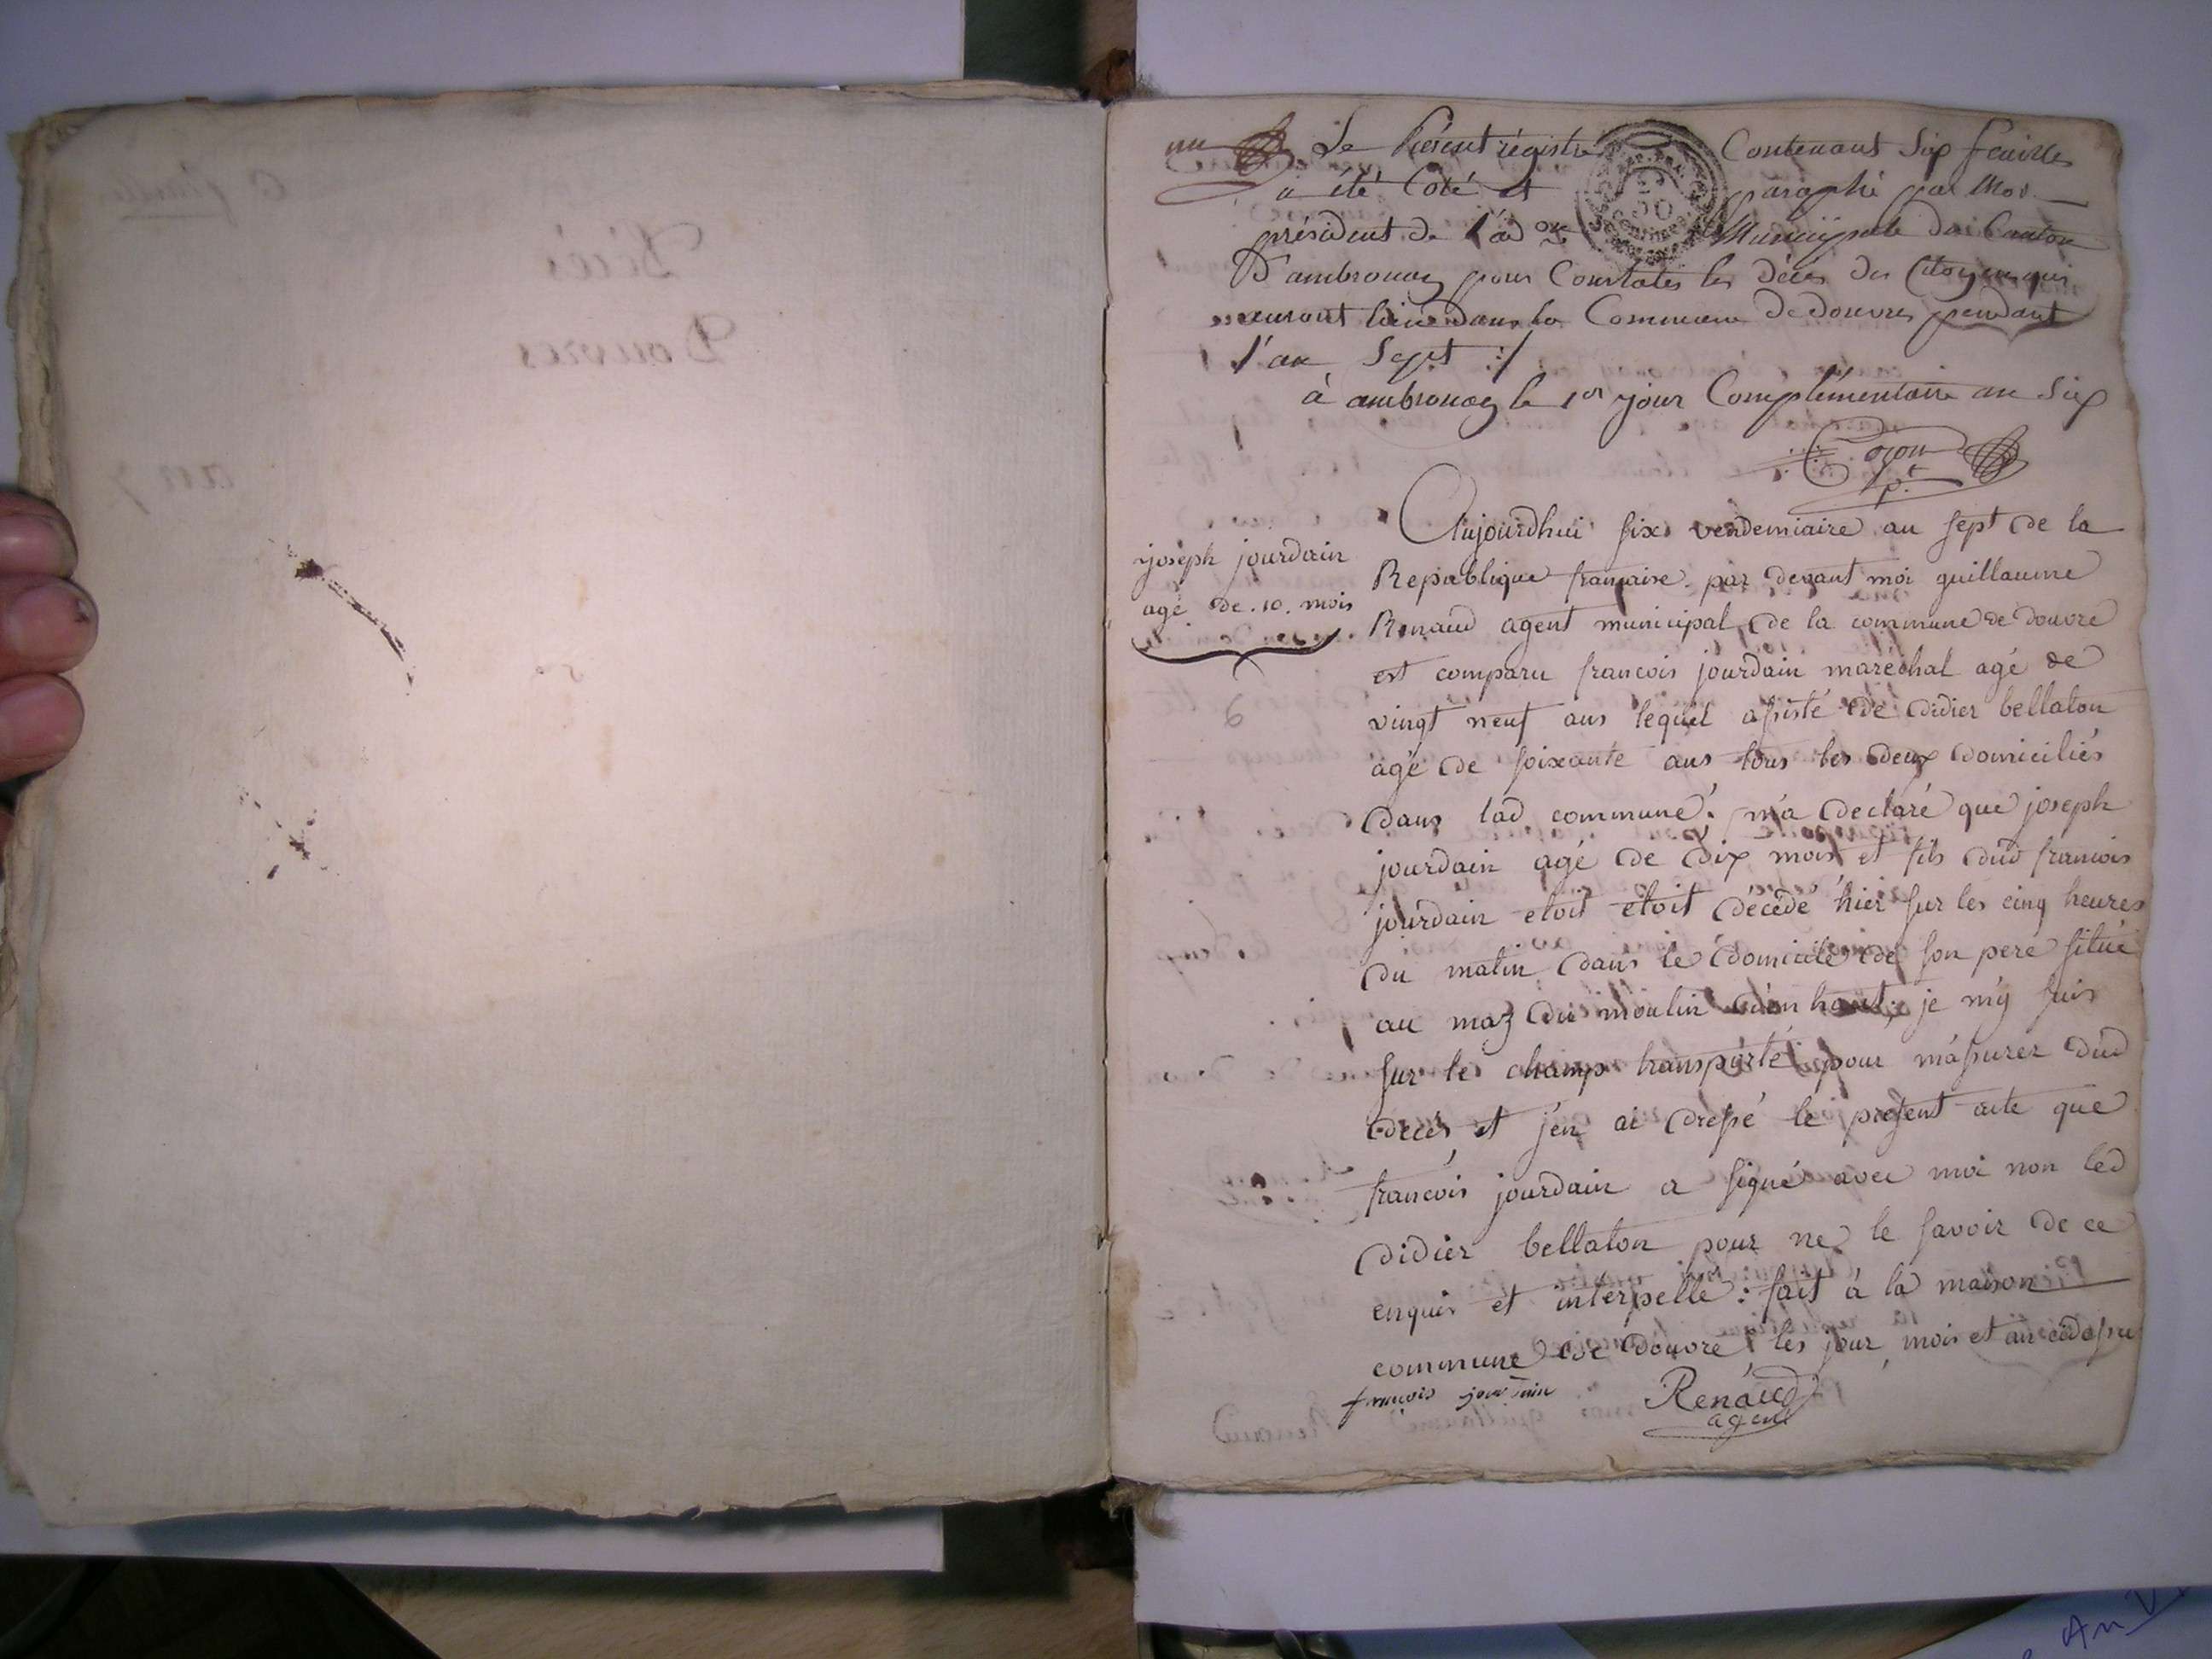 6 feuilles
Décès
Douvres
an 7
un Le Présent régistre Contenant Six feuilles
a été Coté et paraphé par Moi
président de l'ad.on Municipale du Canton
D'ambronay pour Constater les Décès des Citoyens qui
auront lieu dans la Commune de douvres pendant
l'an Sept :/
à ambronay le 1er jour Complémentaire an Six
joseph jourdain
agé de .10. mois
Aujourdhui six vendemiaire an sept de la
Republique francaise par devant moi guillaume
Renaud agent municipal de la commune de douvre
est comparu francois jourdain maréchal agé de
vingt neuf ans lequel assisté de didier bellaton
agé de soixante ans tous les deux domiciliés
dans lad commune, m'a declaré que joseph
jourdain agé de dix mois et fils dud francois
jourdain etoit etoit décédé hier sur les cinq heures
du matin dans le domicile de son pere situé
au maz du moulin d'en haut; je m'y suis
sur le champ transporté pour m'assurer dud
deces et j'en ai dressé le present acte que
francois jourdain a signé avec moi non led
didier bellaton pour ne le savoir de ce
enquis et interpellé : fait à la maison
commune de douvre les jour, mois et an cidessu
francois jourdain Renaud
agent
An V